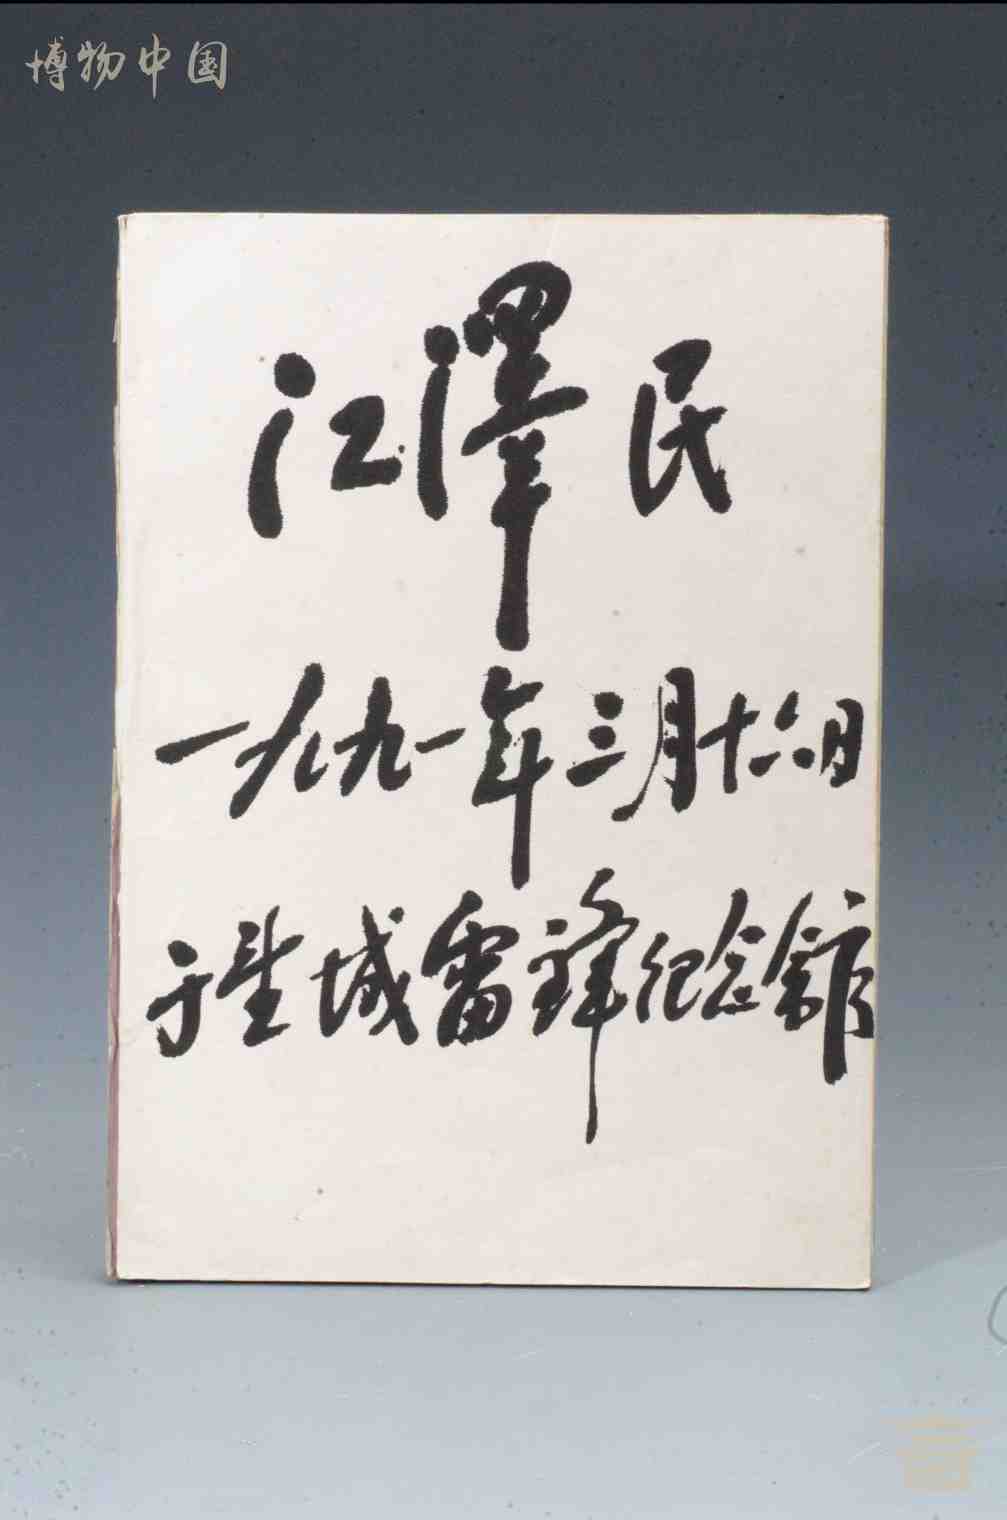 博物中国
江澤民
一九九一年三月十六日
于望城雷锋纪念館